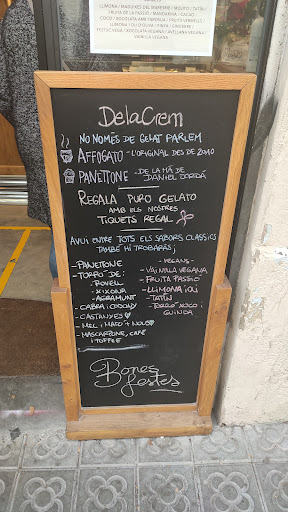 LLIMONA / MADUIXES DEL MARESME / MOJITO / TATIN /
FRUITA DE LA PASSIÓ / MANDARINA / CACAO
COCO / XOCOLATA AMB TARONJA / FRUITS VERMELLS
LLIMONA / OLI D'OLIVA / PINYA / GINGEBRE /
FESTUC VEGÀ / XOCOLATA VEGANA / AVELLANA VEGANA /
VAINILLA VEGANA
DelaCrem
NO NOMÉS DE GELAT PARLEM
AFFOGATO - L'ORIGINAL DES DE 2010
PANETTONE - DE LA MÀ DE
DANIEL JORDÀ
REGALA PURO GELATO
AMB ELS NOSTRES
TIQUETS REGAL
AVUI ENTRE TOTS ELS SABORS CLÀSSICS
TAMBÉ HI TROBARÀS ¡
- PANETTONE
- TORRÓ DE:
- ROVELL
- XIXONA
- AGRAMUNT
- CABRA I CODONY
- CASTANYES
- MEL I MATÓ + NOUS
- MASCARPONE, CAFÉ
I TOFFEE
- VEGANS -
- VAINILLA VEGANA
- FRUITA PASSIÓ
- LLIMONA
- TATIN
- TORRÓ XOCO I
GUINDA
Bones
festes